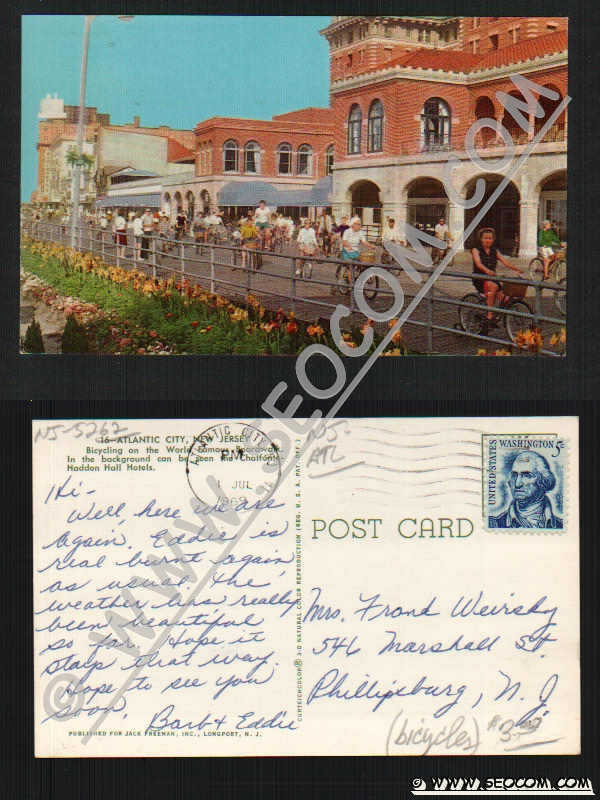 © WWW.SEOCOM.COM
NJ-5262
16—ATLANTIC CITY, NEW JERSEY
Bicycling on the World Famous Boardwalk.
In the background can be seen the Chalfonte-
Haddon Hall Hotels.
Hi-
Well, here we are
again, Eddie is
real burnt again
as usual. The
weather has really
been beautiful
so far. Hope it
stays that way.
Hope to see you
soon,
Barb & Eddie
PUBLISHED FOR JACK FREEMAN, INC., LONGPORT, N. J.
CURTEICHCOLOR® 3-D NATURAL COLOR REPRODUCTION (REG. U. S. A. PAT. OFF.)
ATLANTIC CITY
PM
1 JUL
1969
NJ-
ATL
UNITED STATES
WASHINGTON 5c
POST CARD
Mrs. Frank
546 Marshall St.
Phillipsburg, N. J.
(bicycles)
© WWW.SEOCOM.COM
© WWW.SEOCOM.COM